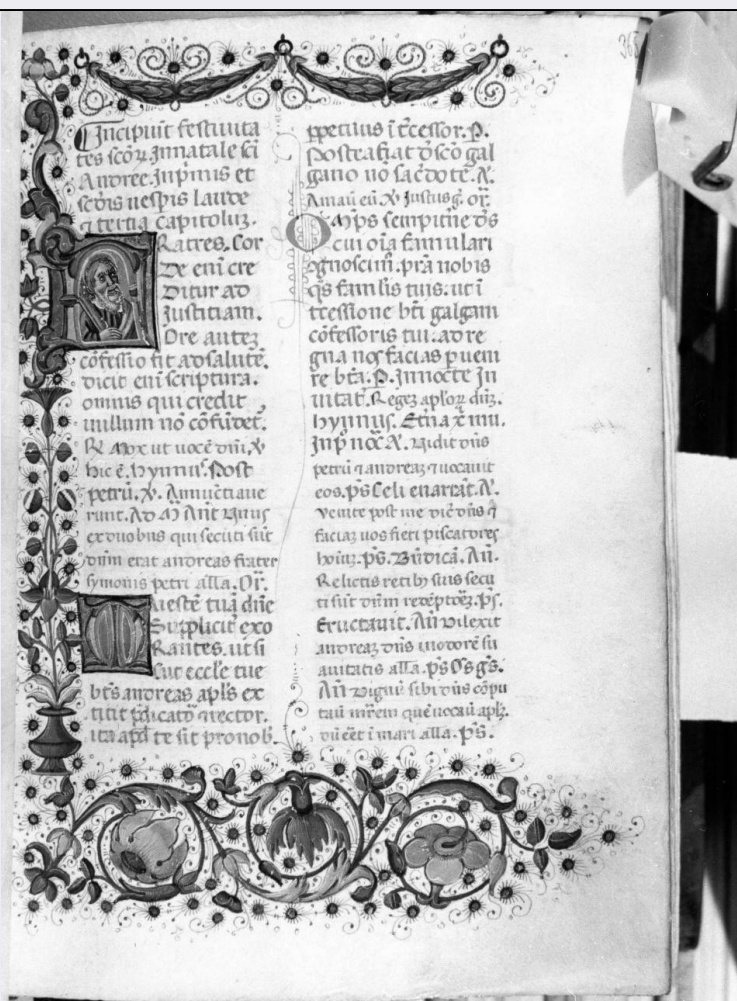 368
Incipiunt festiuita
tes scõꝝ. In natale sci
Andree. In primis et
scdis uespis laude
⁊ tertia capitoluz.
Fratres. Cor
de eni cre
ditur ad
Iustitiam.
Ore autez
cõfessio fit ad salutẽ.
dicit eni scriptura.
omnis qui credit
in illum nõ cõfũdet᷑.
R̃ Mox ut uocẽ dñi, ℣
hic ẽ. hymnus. Post
petrũ. ℣. Annuntiaue
runt. Ad M̃ Añt Unus
ex duobus qui secuti sũt
dñm erat andreas frater
symonis petri alla. Or̃.
Maiestẽ tuã dñe
Supplicit exo
Rantes. ut si
cut eccl'e tue
bt̃s andreas apl's ex
titit p̃dicator ⁊ rector.
ita apd te sit pro nob
ppetuus ĩt̃cessor. P.
Postea fiat d' scõ gal
gano nõ sac̃dote. A.
Amauit eũ. ℣ Justus g̃. or̃.
Omps sempit̃ne d's
cui oĩa famulari
ognoscim̃. pr̃a nobis
q̃s famlis tuis. ut ĩ
tcessione bt̃i galgani
cõfessoris tui. ad re
gna nos facias puenĩ
re bt̃a. P. In nocte In
uitat̃. Regez apl'oꝝ dñz.
hymnus. Et̃na x̃ mu.
In p̃ noc̃ A. Uidit dñs
petrũ ⁊ andreaz ⁊ uocauit
eos. ps̃ Celi enarrãt. A.
Venite post me dic̃ dñs
faciaz uos fieri piscatores
hoĩuz. ps̃. Bñdicã. Añ.
Relictis retib; suis secu
ti sũt dñm redẽptorez. ps̃.
Eructauit. Añ Dilexit
andreaz dñs in odorẽ su
auitatis alla. ps̃ Õs g̃s.
Añ Dignũ sibi dñs cõpu
tauit mr̃em quẽ uocauit apl'z.
dũ eẽt ĩ mari alla. ps̃.